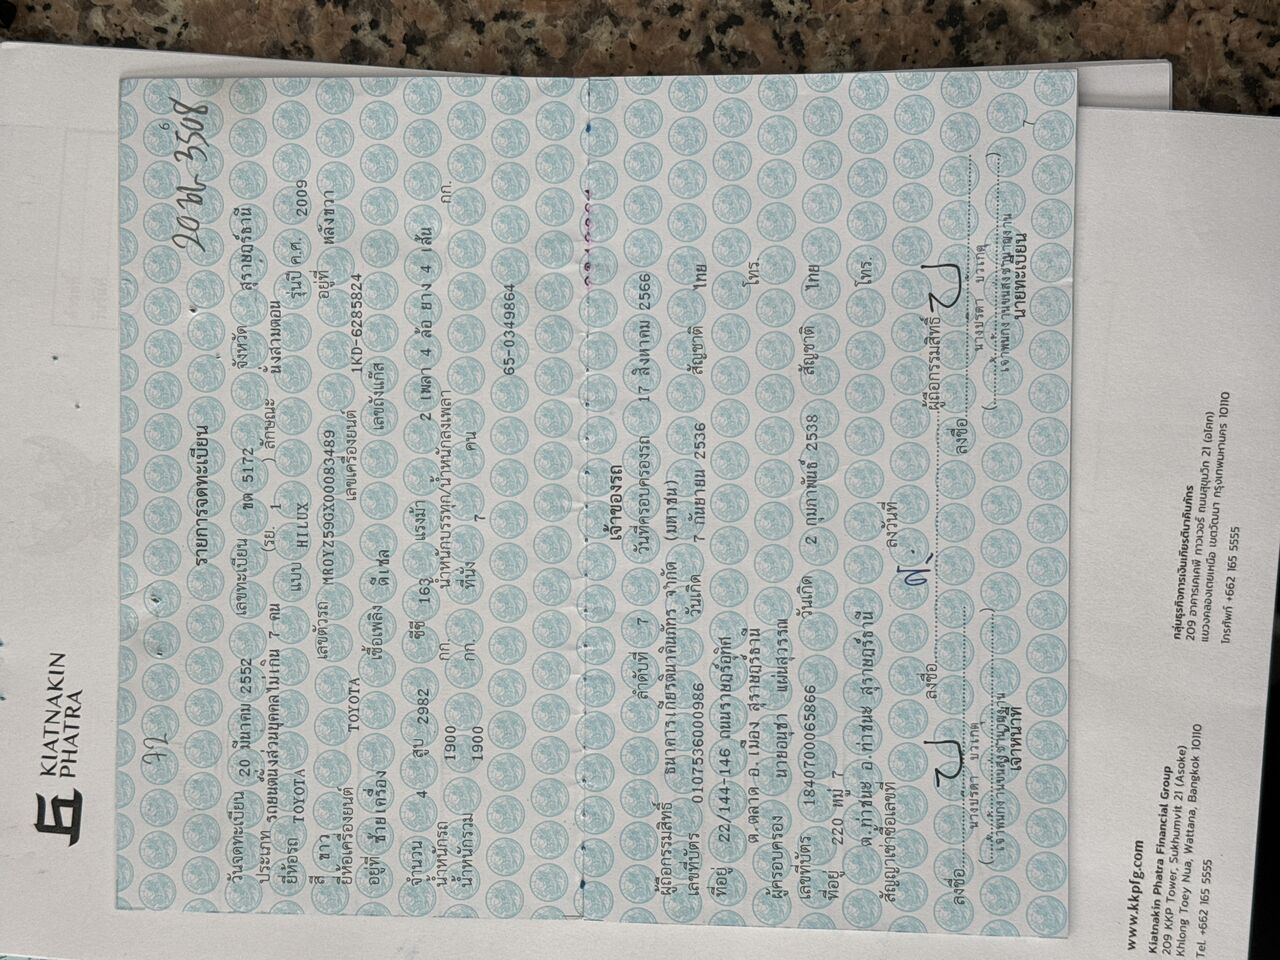 KIATNAKIN
PHATRA
72
20 ฒน 3508
6
รายการจดทะเบียน
วันจดทะเบียน 20 มีนาคม 2552 เลขทะเบียน ขต 5172 จังหวัด สุราษฎร์ธานี
ประเภท รถยนต์นั่งส่วนบุคคลไม่เกิน 7 คน (รย. 1 ) ลักษณะ นั่งสามตอน
ยี่ห้อรถ TOYOTA แบบ HILUX รุ่นปี ค.ศ. 2009
สี ขาว เลขตัวรถ MROYZ59GX00083489 อยู่ที่ หลังขวา
ยี่ห้อเครื่องยนต์ TOYOTA เลขเครื่องยนต์ 1KD-6285824
อยู่ที่ ซ้ายเครื่อง เชื้อเพลิง ดีเซล เลขถังแก๊ส
จำนวน 4 สูบ 2982 ซีซี 163 แรงม้า 2 เพลา 4 ล้อ ยาง 4 เส้น
น้ำหนักรถ 1900 กก. น้ำหนักบรรทุก/น้ำหนักลงเพลา กก.
น้ำหนักรวม 1900 กก. ที่นั่ง 7 คน
65-0349864
เจ้าของรถ
ลำดับที่ 7 วันที่ครอบครองรถ 17 สิงหาคม 2566
ผู้ถือกรรมสิทธิ์ ธนาคารเกียรตินาคินภัทร จำกัด (มหาชน)
เลขที่บัตร 0107536000986 วันเกิด 7 กันยายน 2536 สัญชาติ ไทย
ที่อยู่ 22/144-146 ถนนราษฎร์อุทิศ
ต.ตลาด อ.เมือง สุราษฎร์ธานี โทร.
ผู้ครอบครอง นายอนุชา แผ่นสุวรรณ
เลขที่บัตร 1840700065866 วันเกิด 2 กุมภาพันธ์ 2538 สัญชาติ ไทย
ที่อยู่ 220 หมู่ 7
ต.ท่าชนะ อ.ท่าชนะ สุราษฎร์ธานี โทร.
สัญญาเช่าซื้อเลขที่ ลงวันที่
ลงชื่อ ผู้ถือกรรมสิทธิ์
ลงชื่อ ลงชื่อ
นางปรีดา บวเกตุ นางปรีดา บวเกตุ
เจ้าพนักงานขนส่งชำนาญงาน เจ้าพนักงานขนส่งชำนาญงาน
เจ้าหน้าที่ นายทะเบียน
7
www.kkpfg.com
Kiatnakin Phatra Financial Group
209 KKP Tower, Sukhumvit 21 (Asoke)
Khlong Toey Nua, Wattana, Bangkok 10110
Tel. +662 165 5555
กลุ่มธุรกิจการเงินเกียรตินาคินภัทร
209 อาคารเคเคพี ทาวเวอร์ ถนนสุขุมวิท 21 (อโศก)
แขวงคลองเตยเหนือ เขตวัฒนา กรุงเทพมหานคร 10110
โทรศัพท์ +662 165 5555